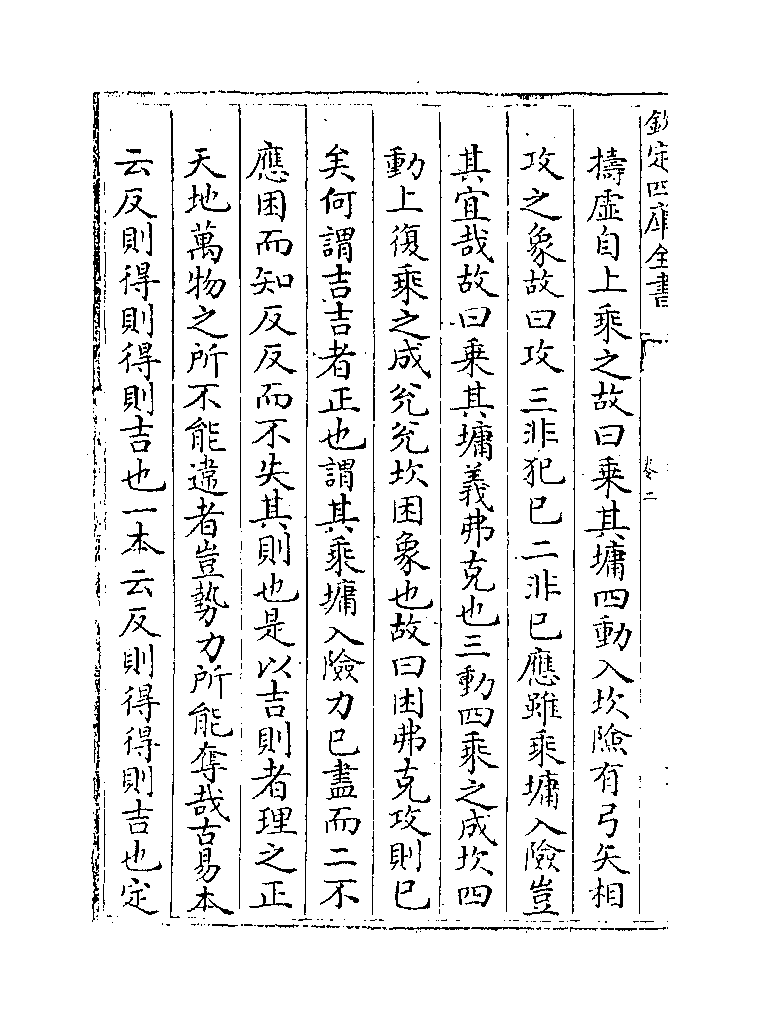 欽定四庫全書
卷二
擣虛自上乘之故曰乗其墉四動入坎險有弓矢相
攻之象故曰攻三非犯已二非已應雖乘墉入險豈
其宜哉故曰乗其墉義弗克也三動四乘之成坎四
動上復乘之成兊兊坎困象也故曰困弗克攻則已
矣何謂吉吉者正也謂其乘墉入險力已盡而二不
應困而知反反而不失其則也是以吉則者理之正
天地萬物之所不能違者豈勢力所能奪哉古易本
云反則得則得則吉也一本云反則得得則吉也定